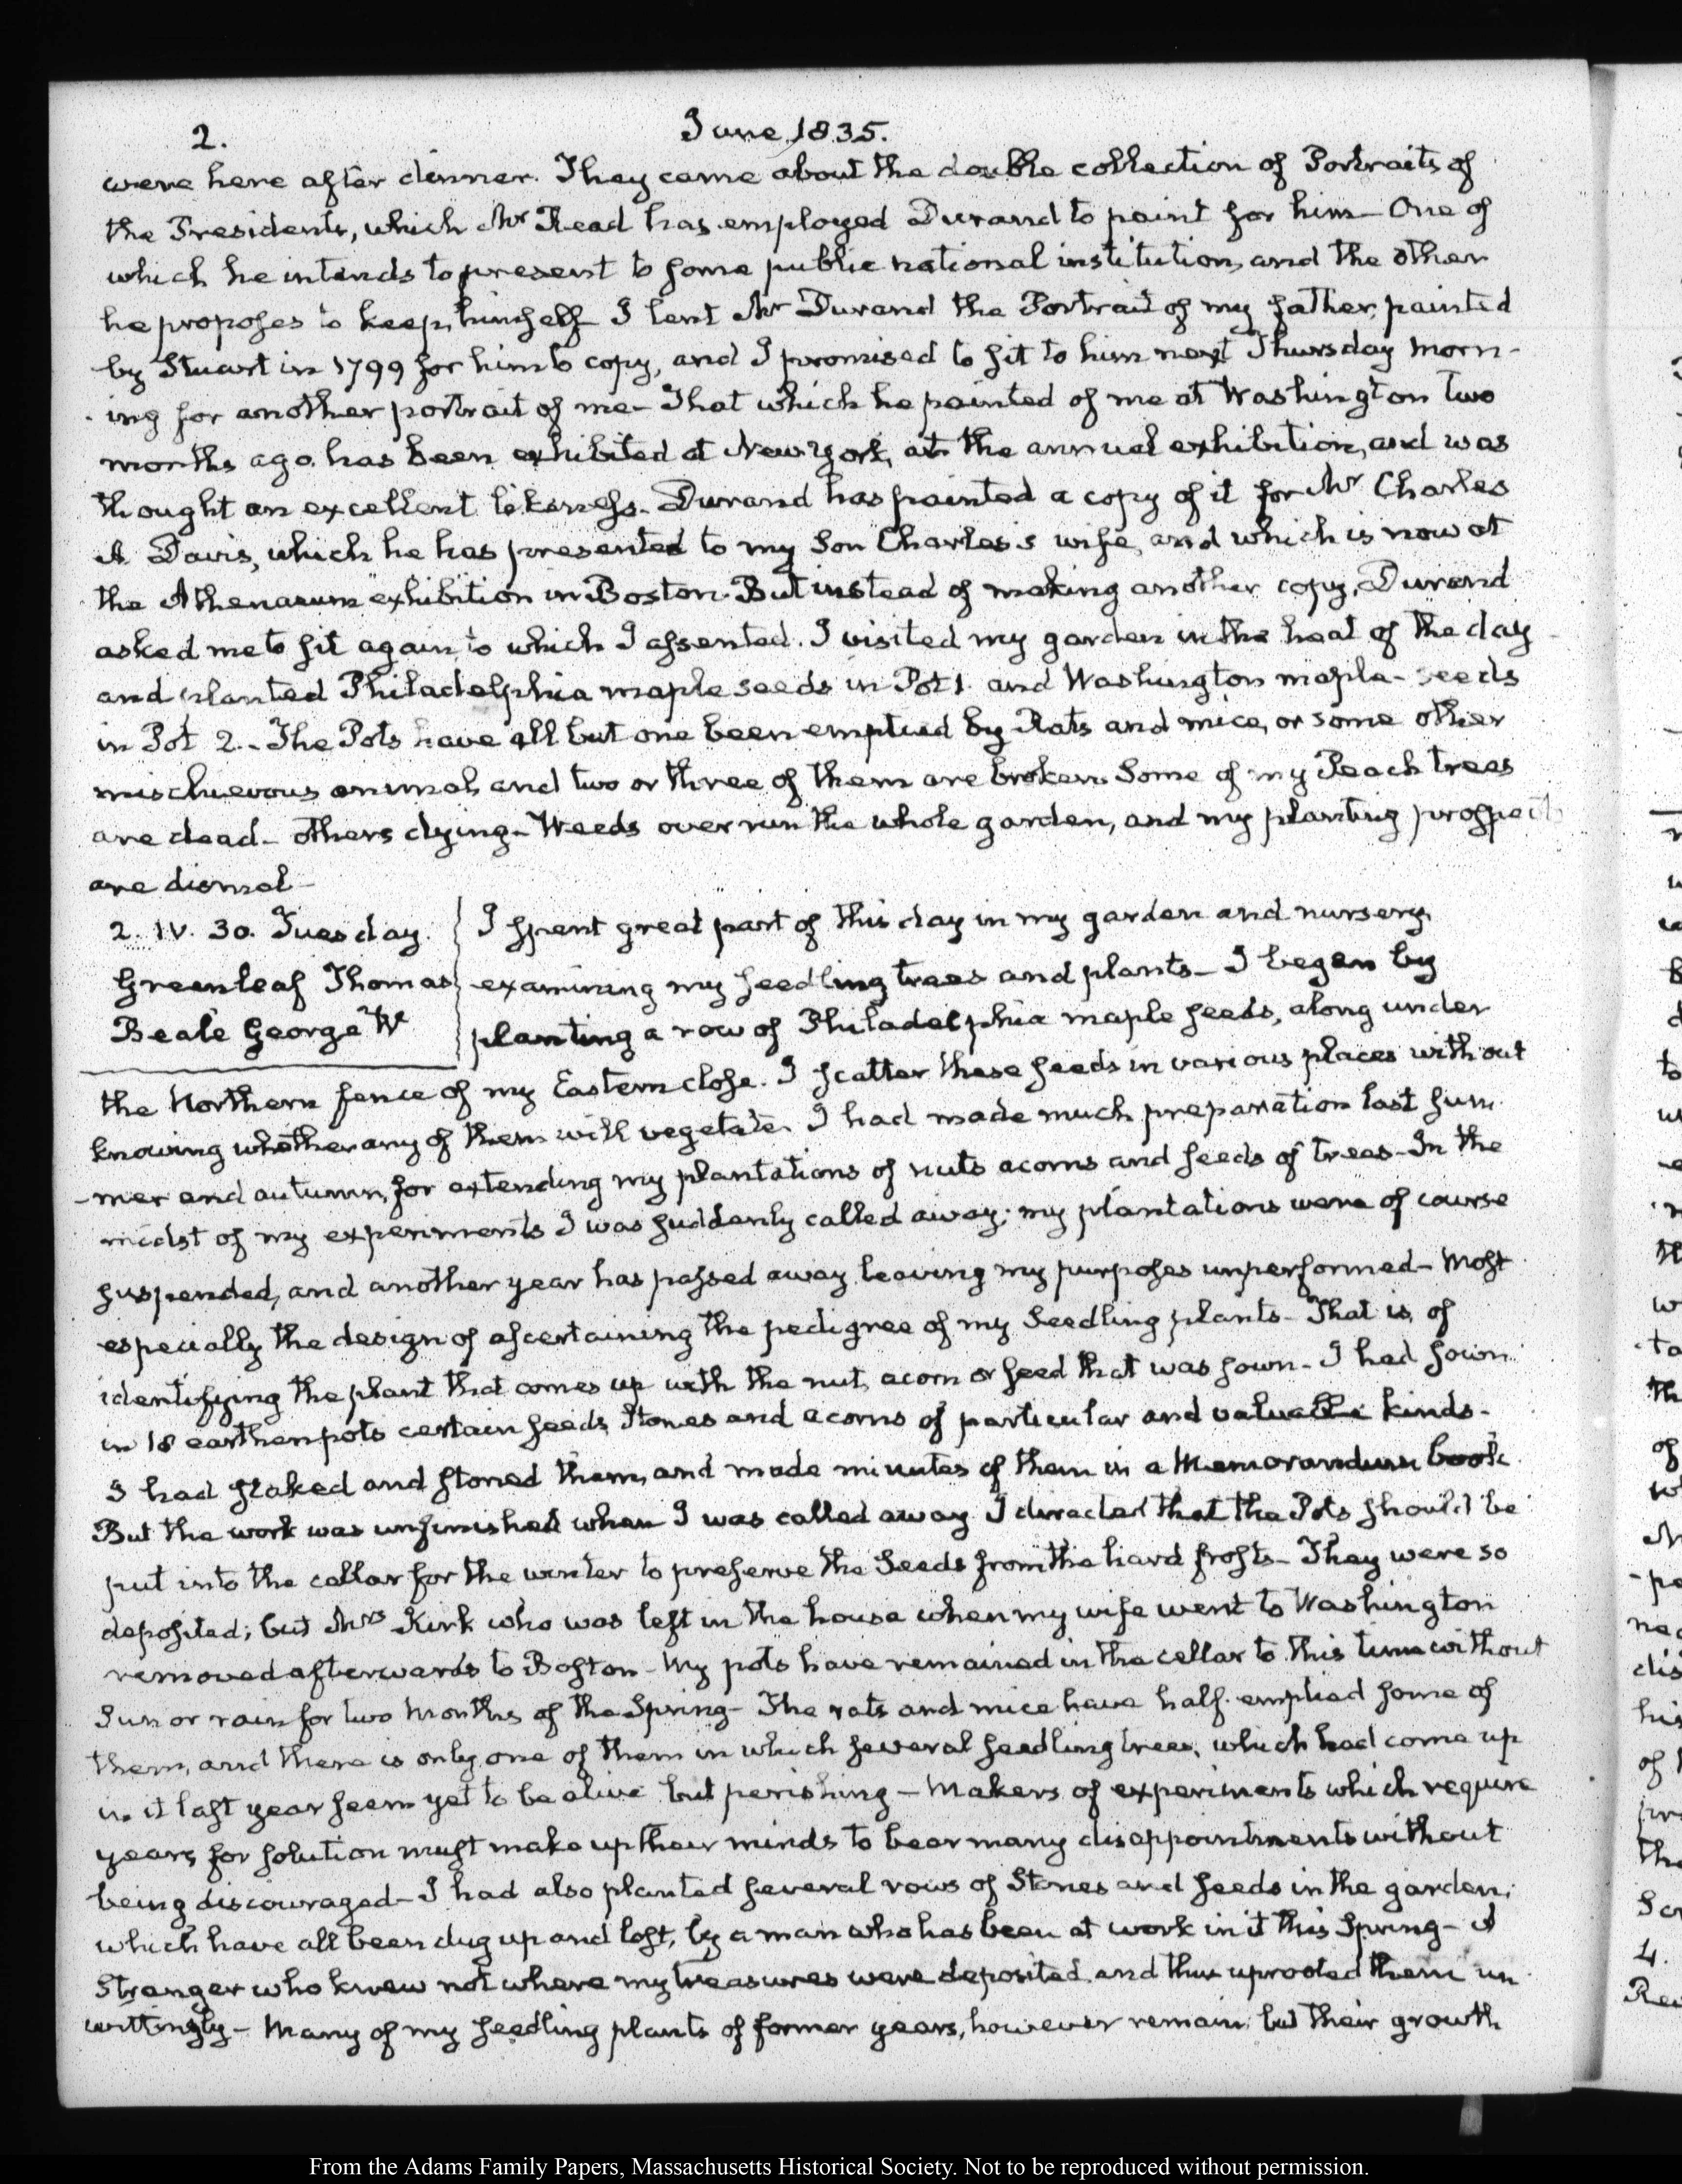 2.
June 1835.
were here after dinner. They came about the double collection of Portraits of
the Presidents, which Mr Read has employed Durand to paint for him— One of
which he intends to present to some public national institution, and the other
he proposes to keep himself— I lent Mr Durand the Portrait of my father, painted
by Stuart in 1799 for him to copy, and I promised to sit to him next Thursday morn-
ing for another portrait of me— That which he painted of me at Washington two
months ago has been exhibited at New-York, at the annual exhibition, and was
thought an excellent likeness— Durand has painted a copy of it for Mr Charles
A Davis, which he has presented to my Son Charles's wife, and which is now at
the Athenaeum exhibition in Boston. But instead of making another copy, Durand
asked me to sit again, to which I assented. I visited my garden in the heat of the day
and planted Philadelphia maple seeds in Pot 1. and Washington maple-seeds
in Pot 2.— The Pots have all but one been emptied by Rats and mice, or some other
mischievous animal, and two or three of them are broken. Some of my Peach trees
are dead— others dying— Weeds overrun the whole garden, and my planting prospects
are dismal—
2. IV. 30. Tuesday.
Greenleaf Thomas
Beale George W
I spent great part of this day in my garden and nursery,
examining my seedling trees and plants— I began by
planting a row of Philadelphia maple seeds, along under
the Northern fence of my Eastern close. I scatter these seeds in various places without
knowing whether any of them will vegetate. I had made much preparation last sum-
-mer and autumn, for extending my plantations of nuts acorns and seeds of trees— In the
midst of my experiments I was suddenly called away; my plantations were of course
suspended, and another year has passed away leaving my purposes unperformed— Most
especially the design of ascertaining the pedigree of my Seedling plants— That is, of
identifying the plant that comes up with the nut, acorn or seed that was sown— I had sown
in 18 earthen pots certain seeds, Stones and acorns of particular and valuable kinds—
I had staked and stoned them, and made minutes of them in a Memorandum book.
But the work was unfinished when I was called away. I directed that the Pots should be
put into the cellar for the winter to preserve the Seeds from the hard frosts— They were so
deposited; but Mrs Kirk who was left in the house when my wife went to Washington
removed afterwards to Boston— My pots have remained in the cellar to this time without
Sun or rain for two Months of the Spring— The rats and mice have half-emptied some of
them, and there is only one of them in which several seedling trees, which had come up
in it last year seem yet to be alive but perishing— Makers of experiments which require
years for solution must make up their minds to bear many disappointments without
being discouraged— I had also planted several rows of Stones and seeds in the garden;
which have all been dug up and lost, by a man who has been at work in it this Spring— A
Stranger who knew not where my treasures were deposited and thus uprooted them un
wittingly— Many of my seedling plants of former years, however remain; but their growth
From the Adams Family Papers, Massachusetts Historical Society. Not to be reproduced without permission.